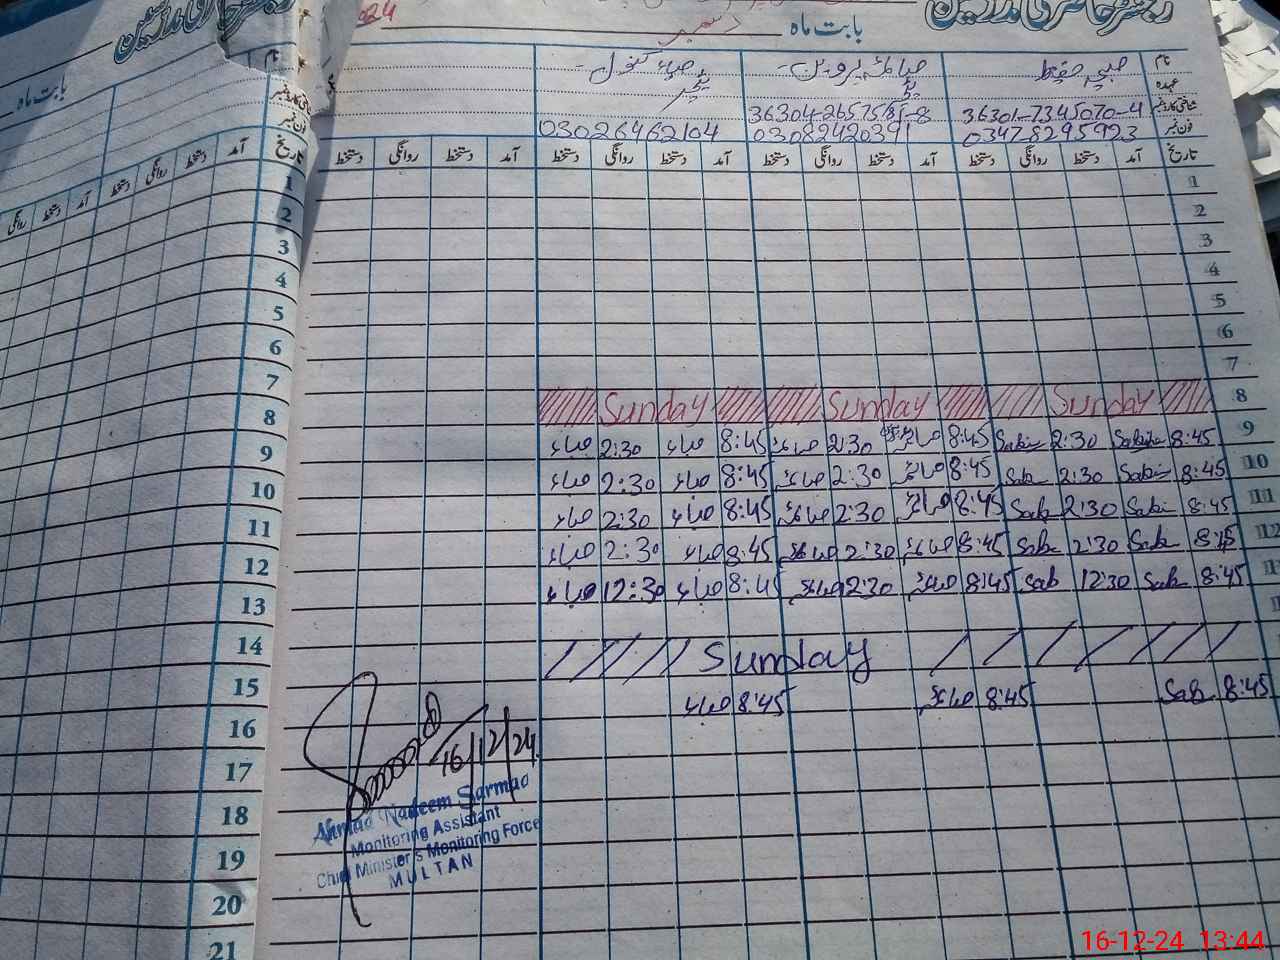 رجسٹر حاضری مدرسین
بابت ماہ دسمبر
نام
عہدہ
شناختی کارڈ نمبر 36301-7345070-4 36304-2657585-8
فون نمبر 03478295923 03082420391 03026462104
ٹیچر
تاریخ آمد دستخط روانگی دستخط آمد دستخط روانگی دستخط آمد دستخط روانگی دستخط آمد دستخط روانگی دستخط
1
2
3
4
5
6
7
8 Sunday Sunday Sunday
9 8:45 2:30 8:45 2:30 8:45 صباء 2:30 صباء
10 8:45 2:30 8:45 2:30 8:45 صباء 2:30 صباء
11 8:45 Sab 2:30 Sab 8:45 2:30 8:45 صباء 2:30 صباء
12 8:45 Sab 2:30 Sab 8:45 2:30 8:45 صباء 2:30 صباء
8:45 Sab 12:30 Sab 8:45 12:30 8:45 صباء 12:30 صباء
Sunday
8:45 Sab 8:45 8:45 صباء
16/12/24
Ahmad Nadeem Sarmad
Monitoring Assistant
Chief Minister's Monitoring Force
MULTAN
بابت ماہ
نام
شناختی کارڈ نمبر
فون نمبر
تاریخ آمد دستخط روانگی دستخط آمد دستخط روانگی
1
2
3
4
5
6
7
8
9
10
11
12
13
14
15
16
17
18
19
20
21
16-12-24 13:44